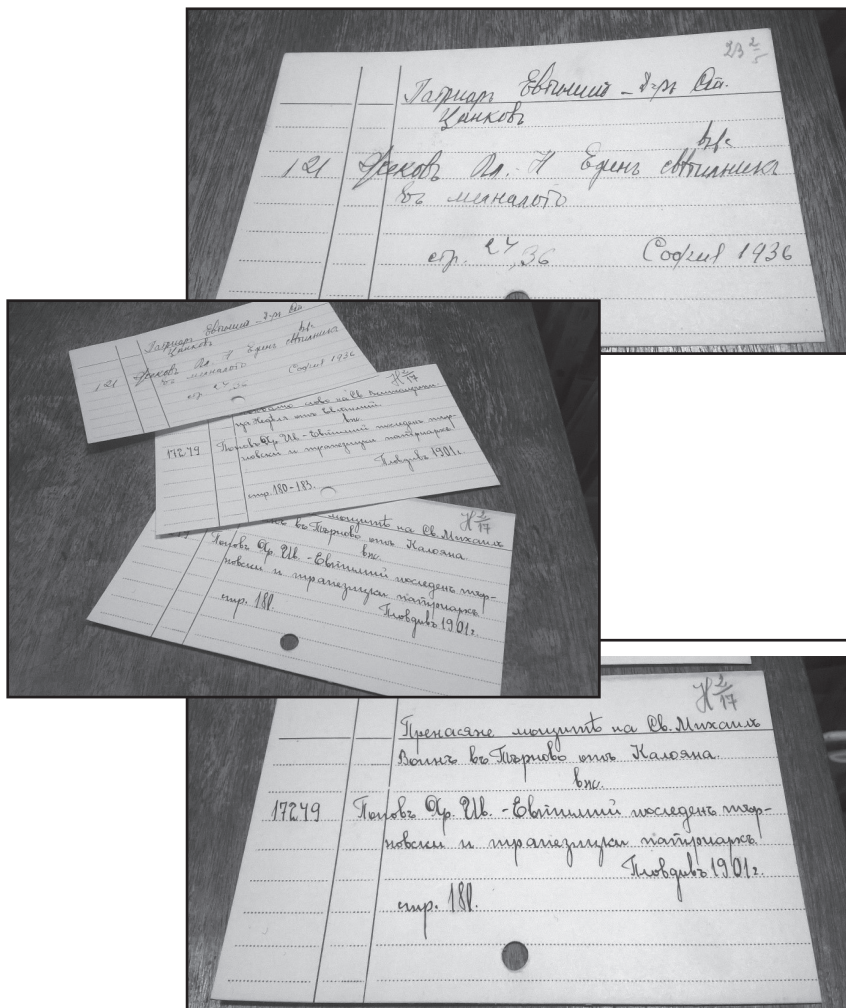 23 2/5
Патриарх Евтимий – д-ръ Ст.
Цанковъ
вж.
121 Ал. Н Единъ светилникъ
въ миналото
стр. 24, 36 София 1936
Патриарх Евтимий – д-ръ Ст.
Цанковъ
вж.
121 Ал. Н Единъ светилникъ
въ миналото
стр. 24, 36 София 1936
Н 2/17
слово на Св.
отъ Евтимий.
вж.
17279 Поповъ Хр. Ив. - Евтимий последенъ тър-
новски и трапезицки патриархъ
Пловдивъ 1901г.
стр. 180-183.
Н 2/17
мощитѣ на Св. Михаилъ
въ Търново отъ Калояна.
вж.
Поповъ Хр. Ив. - Евтимий последенъ тър-
новски и трапезицки патриархъ
Пловдивъ 1901г.
стр. 181.
Н 2/17
Пренасяне мощитѣ на Св. Михаилъ
Воинъ въ Търново отъ Калояна.
вж.
17279 Поповъ Хр. Ив. - Евтимий последенъ тър-
новски и трапезицки патриархъ
Пловдивъ 1901г.
стр. 181.